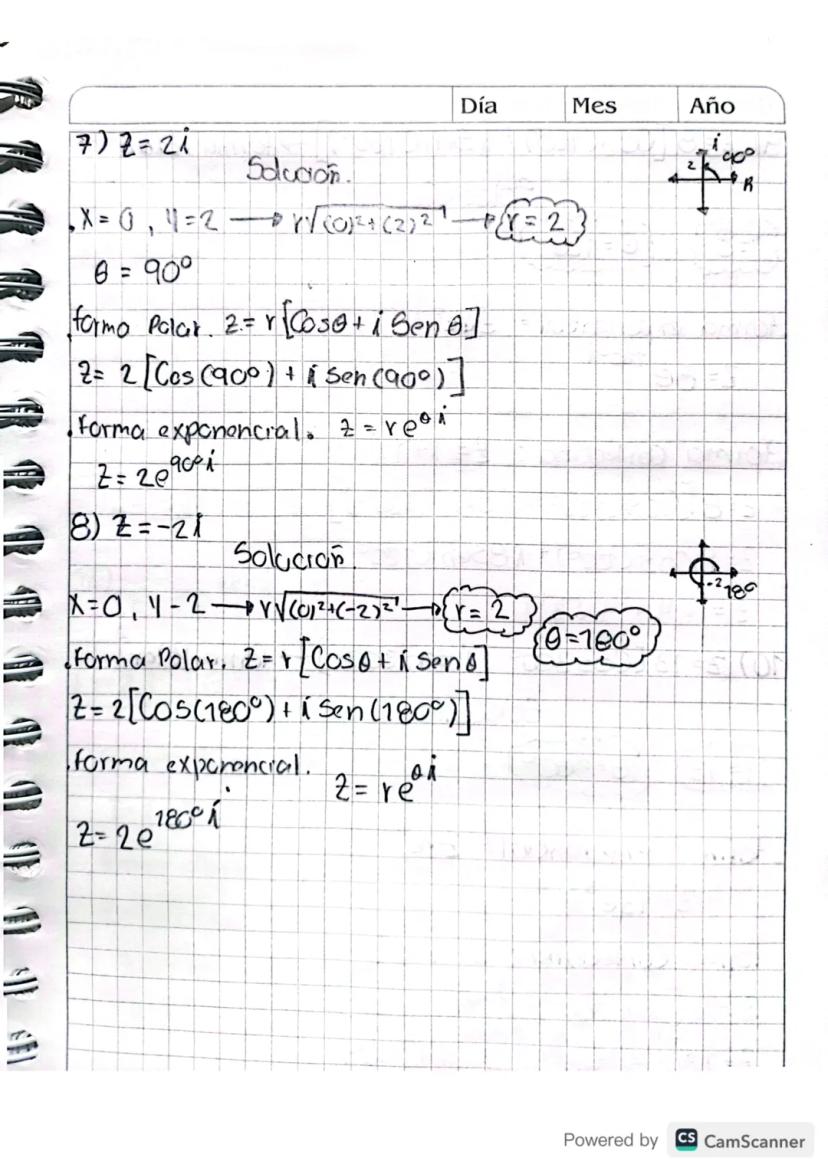 Día Mes Año
7) Z=2i
Solución.
i 90°
2
R
X=0, Y=2 → r√(0)²+(2)² → r=2
θ = 90°
forma Polar. Z=r[Cosθ+i Sen θ]
Z= 2[Cos(90°)+i Sen(90°)]
forma exponencial. Z=re^θi
Z=2e^90°i
8) Z=-2i
Solución.
-2 180
X=0, Y-2 → r√(0)²+(-2)² → r=2
θ=180°
forma Polar. Z=r[Cosθ+i Senθ]
Z=2[Cos(180°)+i Sen(180°)]
forma exponencial. Z=re^θi
Z=2e^180°i
Powered by CS CamScanner